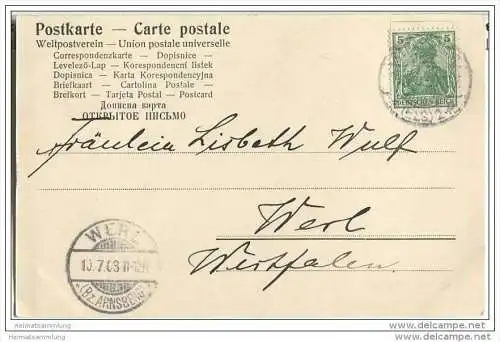 Postkarte — Carte postale
Weltpostverein — Union postale universelle
Correspondenzkarte — Dopisnice —
Levelező-Lap — Korespondenční listek
Dopisnica — Karta Korespondencyjna
Briefkaart — Cartolina Postale —
Brefkort — Tarjeta Postal — Postcard
Дописна карта
ОТКРЫТОЕ ПИСЬМО
5 5
DEUTSCHES REICH
Fräulein Lisbeth Wulf
Werl
Westfalen.
WERL
(Bz. ARNSBERG)
Heimatsammlung
Heimatsammlung
www.delcampe.net